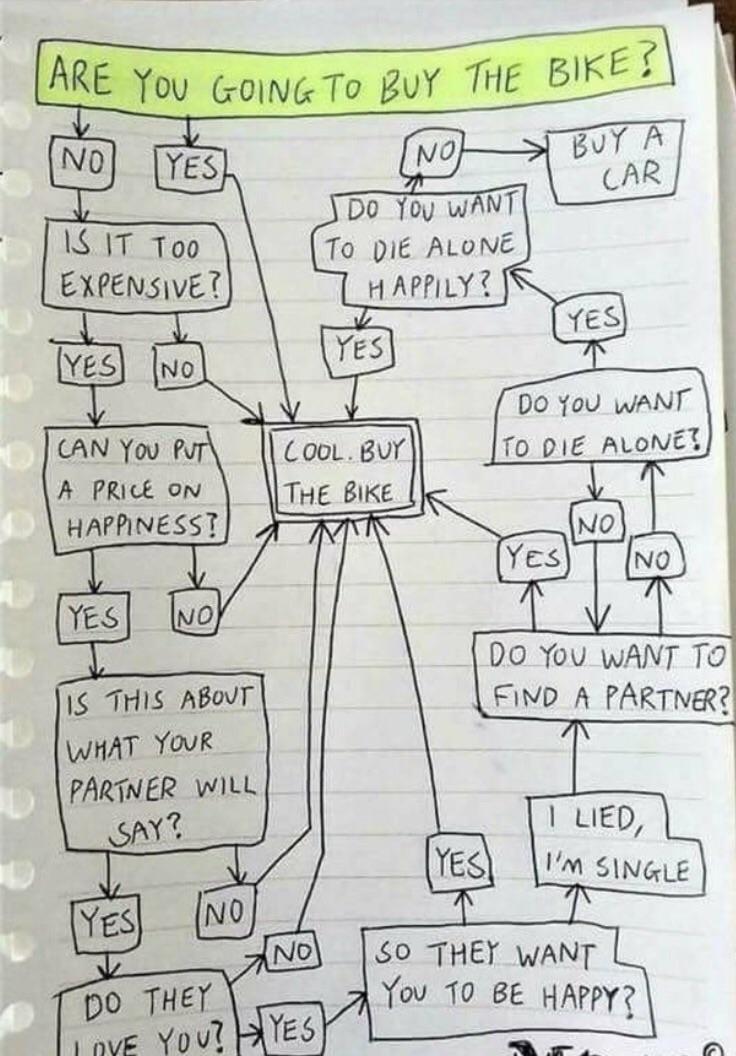 ARE YOU GOING TO BUY THE BIKE?
NO
YES
NO
BUY A
CAR
DO YOU WANT
TO DIE ALONE
HAPPILY?
IS IT TOO
EXPENSIVE?
YES
YES
YES
NO
DO YOU WANT
TO DIE ALONE?
CAN YOU PUT
A PRICE ON
HAPPINESS?
COOL. BUY
THE BIKE
NO
YES
NO
YES
NO
DO YOU WANT TO
FIND A PARTNER?
IS THIS ABOUT
WHAT YOUR
PARTNER WILL
SAY?
I LIED,
I'M SINGLE
YES
YES
NO
NO
SO THEY WANT
YOU TO BE HAPPY?
DO THEY
LOVE YOU?
YES